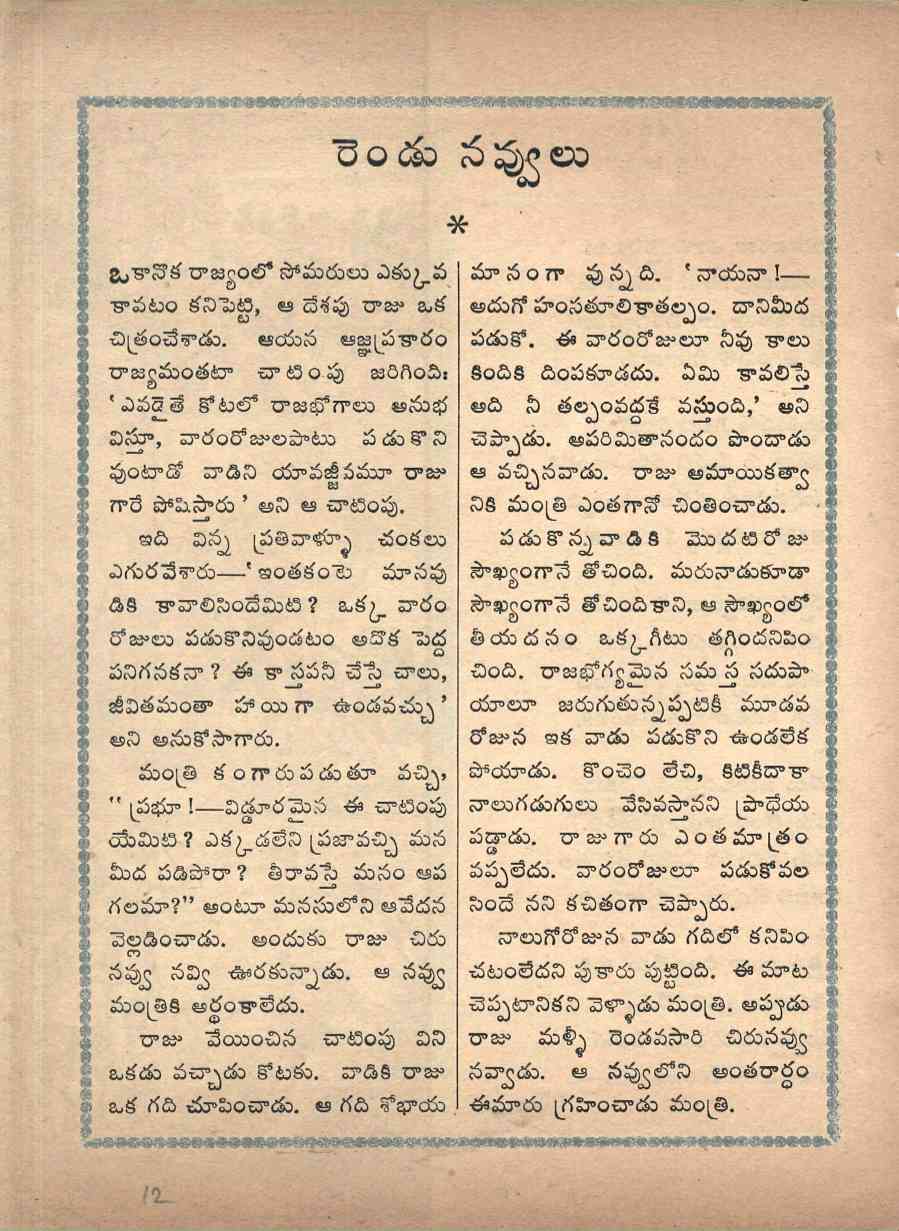 రెండు నవ్వులు
*
ఒకానొక రాజ్యంలో సోమరులు ఎక్కువ
కావటం కనిపెట్టి, ఆ దేశపు రాజు ఒక
చిత్రంచేశాడు. ఆయన ఆజ్ఞప్రకారం
రాజ్యమంతటా చాటింపు జరిగింది:
‘ఎవడైతే కోటలో రాజభోగాలు అనుభ
విస్తూ, వారంరోజులపాటు పడుకొని
వుంటాడో వాడిని యావజ్జీవమూ రాజు
గారే పోషిస్తారు’ అని ఆ చాటింపు.
ఇది విన్న ప్రతివాళ్ళూ చంకలు
ఎగురవేశారు—‘ఇంతకంటె మానవు
డికి కావాలిసిందేమిటి? ఒక్క వారం
రోజులు పడుకొనివుండటం అదొక పెద్ద
పనిగనకనా? ఈ కాస్తపనీ చేస్తే చాలు,
జీవితమంతా హాయిగా ఉండవచ్చు’
అని అనుకోసాగారు.
మంత్రి కంగారుపడుతూ వచ్చి,
“ప్రభూ!—విడ్డూరమైన ఈ చాటింపు
యేమిటి? ఎక్కడలేని ప్రజావచ్చి మన
మీద పడిపోరా? తీరావస్తే మనం ఆప
గలమా?” అంటూ మనసులోని ఆవేదన
వెల్లడించాడు. అందుకు రాజు చిరు
నవ్వు నవ్వి ఊరకున్నాడు. ఆ నవ్వు
మంత్రికి అర్థంకాలేదు.
రాజు వేయించిన చాటింపు విని
ఒకడు వచ్చాడు కోటకు. వాడికి రాజు
ఒక గది చూపించాడు. ఆ గది శోభాయ
మానంగా వున్నది. ‘నాయనా!—
అదుగో హంసతూలికాతల్పం. దానిమీద
పడుకో. ఈ వారంరోజులూ నీవు కాలు
కిందికి దింపకూడదు. ఏమి కావలిస్తే
అది నీ తల్పంవద్దకే వస్తుంది,’ అని
చెప్పాడు. అపరిమితానందం పొందాడు
ఆ వచ్చినవాడు. రాజు అమాయికత్వా
నికి మంత్రి ఎంతగానో చింతించాడు.
పడుకొన్నవాడికి మొదటిరోజు
సౌఖ్యంగానే తోచింది. మరునాడుకూడా
సౌఖ్యంగానే తోచిందికాని, ఆ సౌఖ్యంలో
తీయదనం ఒక్కగీటు తగ్గిందనిపిం
చింది. రాజభోగ్యమైన సమస్త సదుపా
యాలూ జరుగుతున్నప్పటికీ మూడవ
రోజున ఇక వాడు పడుకొని ఉండలేక
పోయాడు. కొంచెం లేచి, కిటికీదాకా
నాలుగడుగులు వేసివస్తానని ప్రాధేయ
పడ్డాడు. రాజుగారు ఎంతమాత్రం
వప్పలేదు. వారంరోజులూ పడుకోవల
సిందే నని కచితంగా చెప్పారు.
నాలుగోరోజున వాడు గదిలో కనిపిం
చటంలేదని పుకారు పుట్టింది. ఈ మాట
చెప్పటానికని వెళ్ళాడు మంత్రి. అప్పుడు
రాజు మళ్ళీ రెండవసారి చిరునవ్వు
నవ్వాడు. ఆ నవ్వులోని అంతరార్ధం
ఈమారు గ్రహించాడు మంత్రి.
12